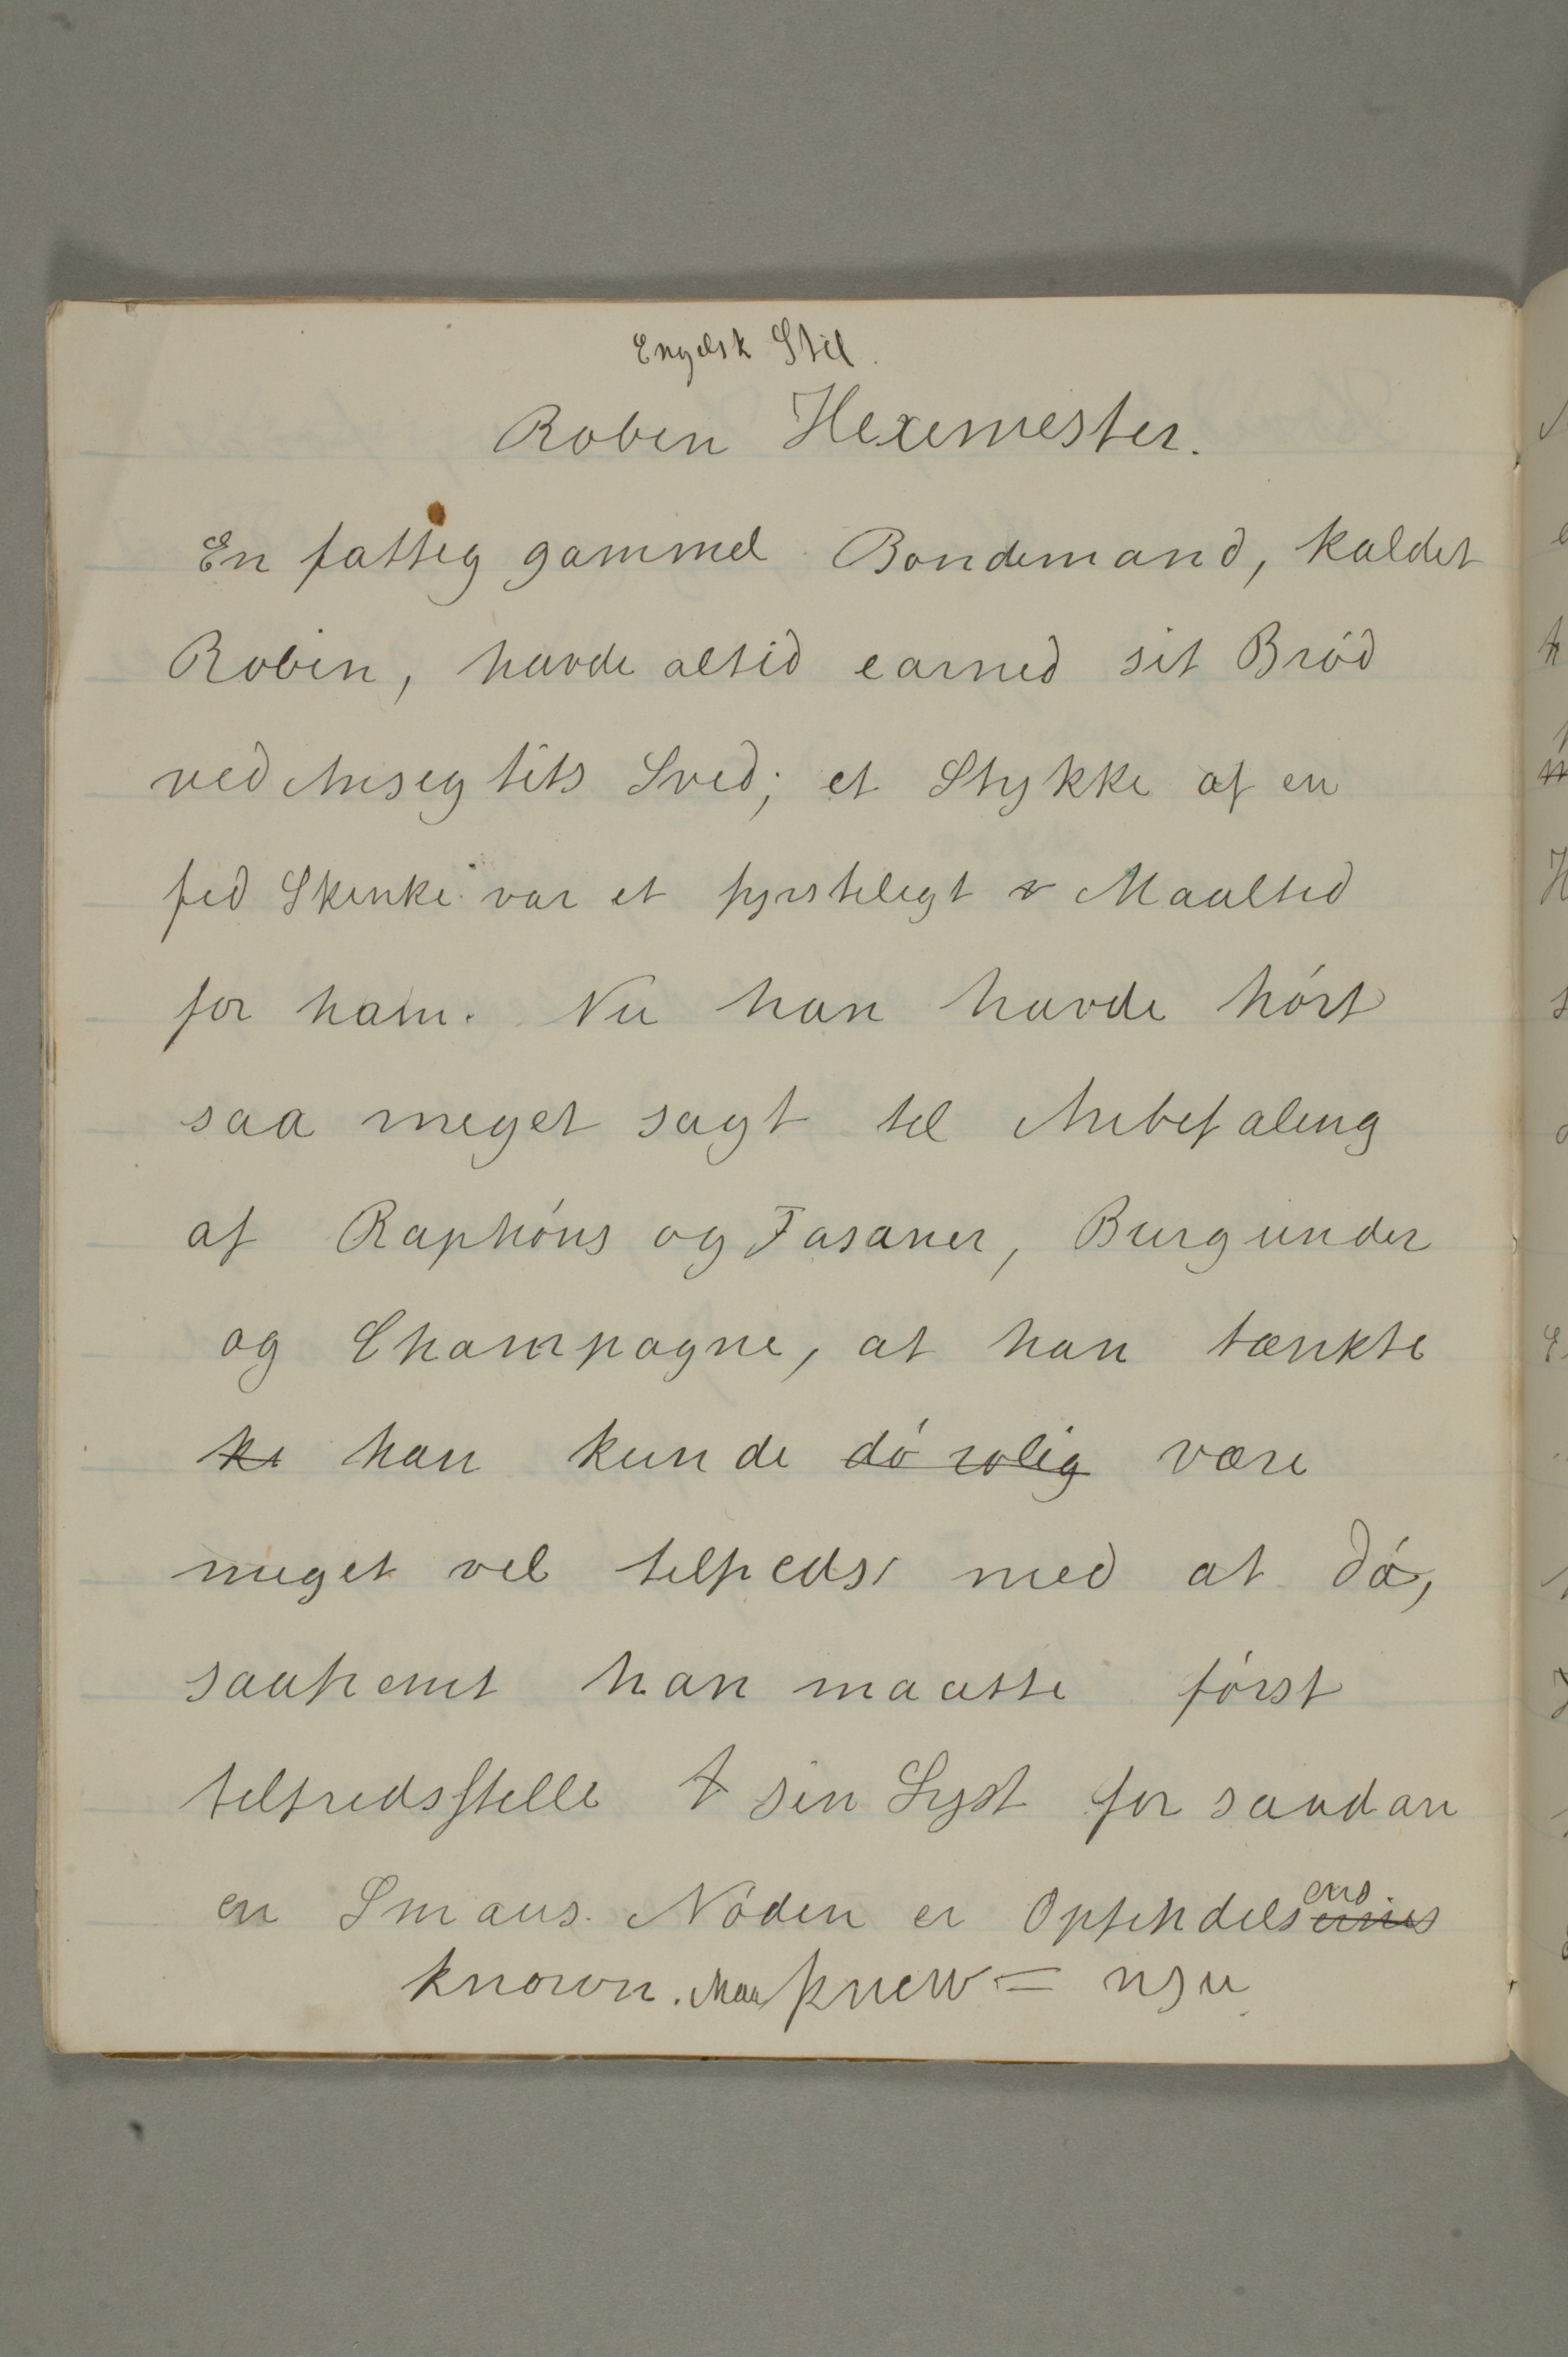 Engelsk Stil.
Robin Hexemester.
En fattig gammel Bondemand, kaldet
Robin, havde altid earned sit Bród
ved Ansigtets Sved; et Stykke af en
fed Skinke var et fyrsteligt Maaltid
for ham. Nu han havde hórt
saa meget sagt til Anbefaling
af Raphóns og Fasaner, Burgunder
og Champagne, at han tænkte
ke han kunde dó rolig være
meget vel tilfreds med at dó,
saafremt han maatte fórst
tilfredsstille t sin Lyst for saadan
en Smaus. Nóden er Opfindels ens
known. knew = nju